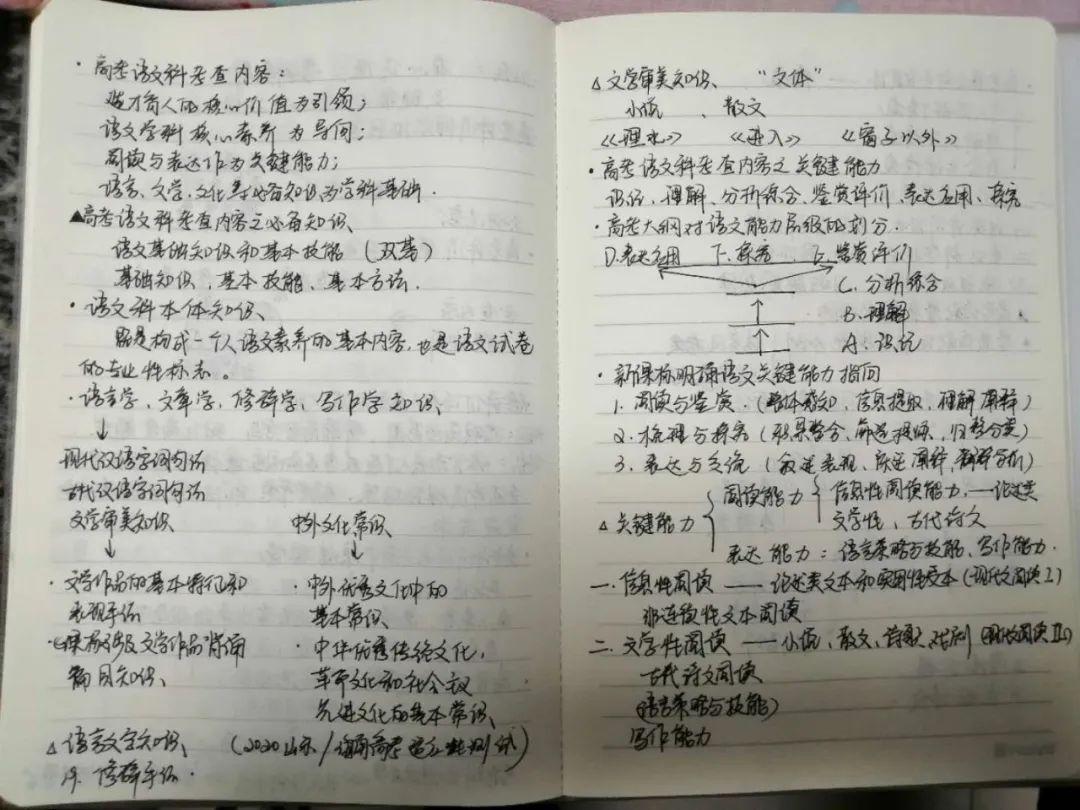 · 高考语文科考查内容:
选才育人的核心价值为引领;
语文学科核心素养为导向;
阅读与表达作为关键能力;
语言、文学、文化等必备知识为学科基础.
▲高考语文科考查内容之必备知识、
语文基础知识和基本技能(双基)
基础知识、基本技能、基本方法.
· 语文科本体知识、
既是构成一个人语文素养的基本内容,也是语文试卷
的专业性标志。
· 语言学、文章学、修辞学、写作学知识、
↓
现代汉语字词句法
古代汉语字词句法
文学审美知识 中外文化常识
↓ ↓
· 文学作品的基本特征和 · 中外优秀文化中的
表现手法 基本常识
· 课标涉及文学作品背诵 · 中华优秀传统文化,
篇目知识、 革命文化和社会主义
先进文化的基本常识、
△ 语言文字知识、 (2020山东/海南高考适应性测试)
修辞手法.
△ 文学审美知识、 “文体”
小说 、 散文
《理水》 《进入》 《窗子以外》
· 高考语文科考查内容之关键能力
识记、理解、分析综合、鉴赏评价、表达应用、探究
· 高考大纲对语文能力层级的划分.
D.表达应用 F.探究 E.鉴赏评价
C.分析综合
B.理解
A.识记
· 新课标明确语文关键能力指向
1. 阅读与鉴赏.(整体感知,信息提取,理解阐释)
2. 梳理与探究(积累整合、筛选提炼,归整分类)
3. 表达与交流(叙述表现、陈述阐释,解释分析)
阅读能力 信息性阅读能力,—论述类
△ 关键能力 文学性、古代诗文
表达能力:语言策略与技能、写作能力.
一. 信息性阅读 —— 论述类文本和实用性文本(现代文阅读Ⅰ)
非连续性文本阅读
二. 文学性阅读 —— 小说、散文、诗歌、戏剧(现代文阅读Ⅱ)
古代诗文阅读
(语言策略与技能)
写作能力